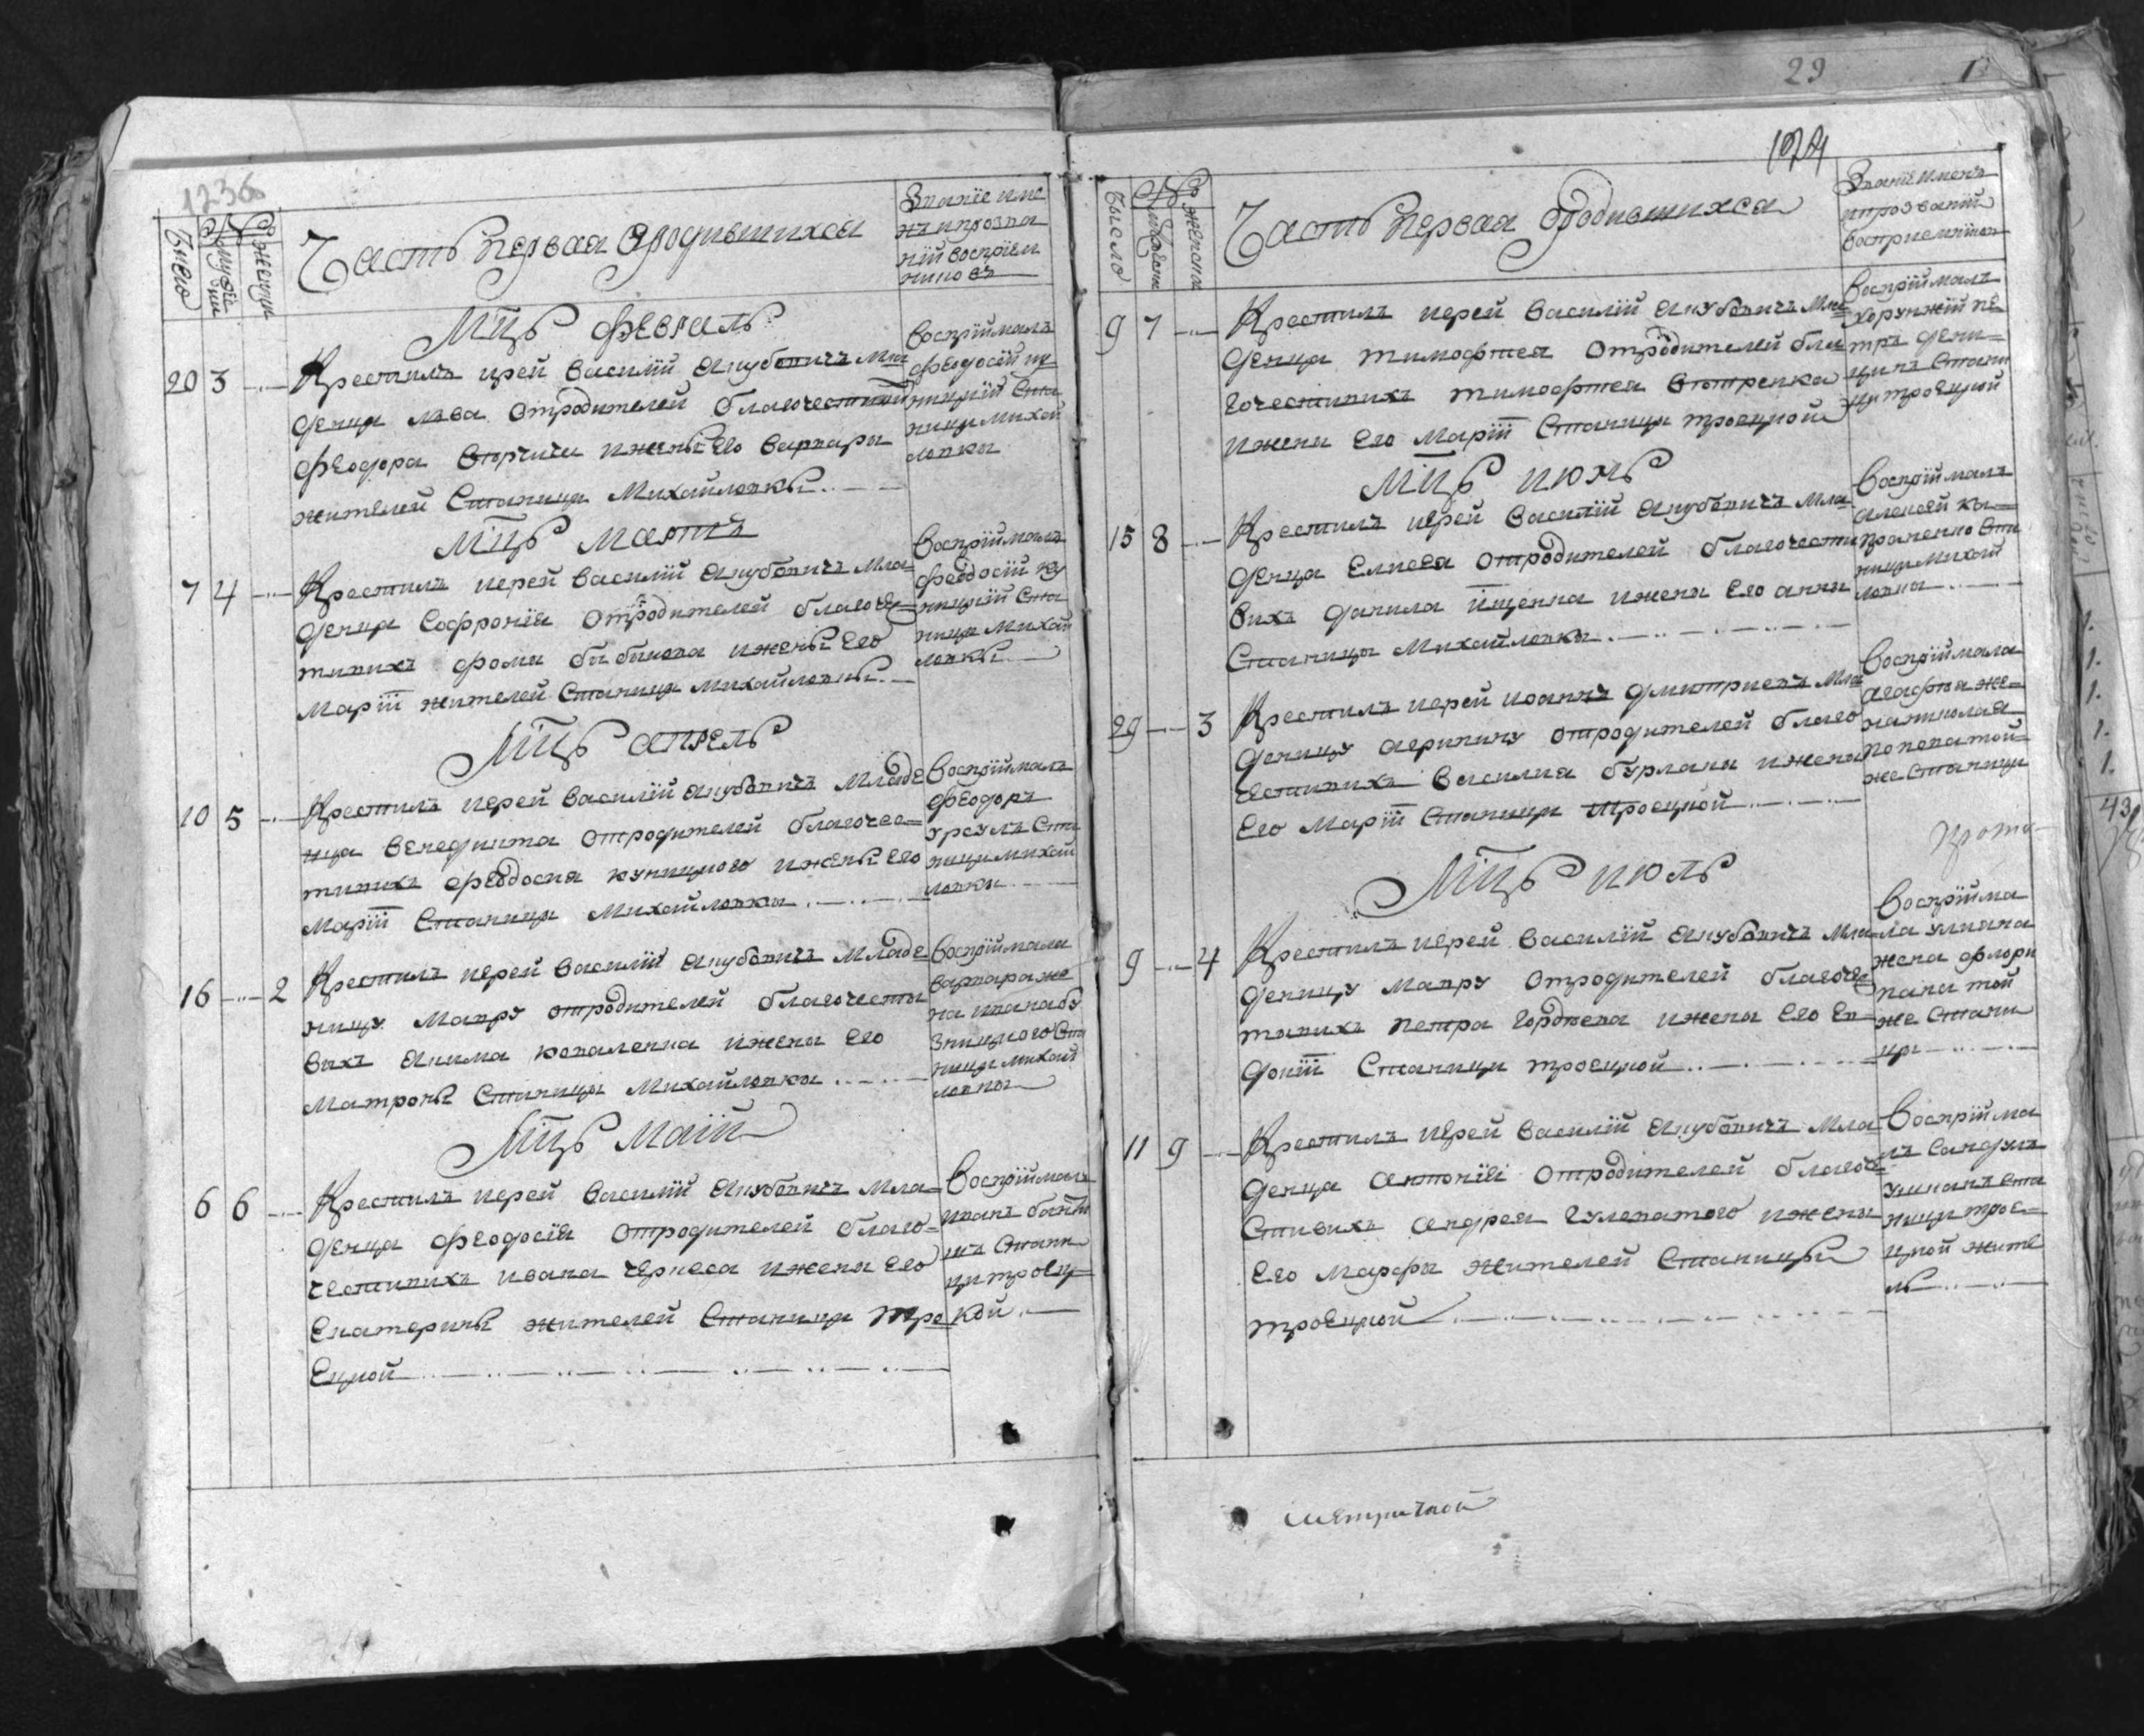 1236
Число
Мужескій
Женскій
Часть Первая ѡ родившихся
Званїе име
нъ и прозва
нїй восприем
никовъ
Мцъ февраль
20 3 Крестилъ иерей Василій Якубовичъ Мла
денца Лва ѿ родителей благочестивих
Феодора и жены его Варвары
жителей Станици Михайловки
Воспріймалъ
Феодосій ку
ницкій Ста
ници Михай
ловки
Мцъ мартъ
7 4 Крестилъ иерей Василій Якубовичъ Мла=
денца Софронія ѿ родителей благочес=
тивихъ Фоми бибикова и жены его
Маріи жителей Станици Михайловки
Воспріймалъ
Феодосій ку
ницкій Ста
ници Михай
ловки
Мцъ апрель
10 5 Крестилъ иерей Василій Якубовичъ Младе
нца Венедикта ѿ родителей благочес=
тивихъ Феодосия куницкого и жены его
Маріи Станици Михайловки
Воспріймалъ
Феодоръ
Урсулъ Ста
ници Михай
ловки
16 2 Крестилъ иерей Василій Якубовичъ Младе
ницу Мавру ѿ родителей благочести
вихъ Якима коваленка и жени его
Матроны Станици Михайловки
Воспріймала
Варвара же
на Ивана бу
зницкого Ста
ници Михай
ловки
Мцъ май
6 6 Крестилъ иерей Василій Якубовичъ Мла=
денца Феодосія ѿ родителей благо=
честивихъ Ивана Черкеса и жени его
Екатерины жителей Станици Тро
ецкой
Воспріймалъ
Иванъ
Стани
ци Троец=
кой
29
1
Число
Мужескій
Женскій
Часть Первая ѡ родившихся
Званїе именъ
и прозваній
восприемниковъ
9 7 Крестилъ иерей Василій Якубовичъ Мла
денца Тимофтея ѿ родителей бла
гочестивихъ Тимофтея и жени его Маріи Станици Троецкой
Воспріймалъ
Хорунжій Пе
тръ дени=
цинъ Стани
ци Троецкой
Мцъ июнь
15 8 Крестилъ иерей Василій Якубовичъ Мла
денца Елисея ѿ родителей благочести
вихъ Данила Ищенка и жени его Анны
Станици Михайловки
Воспріймалъ
Алексей Кы=
Ста
ници Михай
ловки
29 3 Крестилъ иерей Иоаннъ Дмитриевъ Мла
деницу Агрипину ѿ родителей благо
честивихъ Василия бурлаки и жени
его Маріи Станици Троецкой
Воспріймала
Агафтя же=
на Николая
Попова той=
же Станици
Мцъ июль
9 4 Крестилъ иерей Василій Якубовичъ Мла=
деницу Мавру ѿ родителей благочес
тивихъ Петра Гордѣева и жени его Ев=
докіи Станици Троецкой
Воспрійма
ла Улияна
жена Флори
нана той
же Стани
ци
11 9 Крестилъ иерей Василій Якубовичъ Мла
денца Антонія ѿ родителей благоче
стивихъ Андрея Гулеватого и жены
его Марфы жителей Станицы
Троецкой
Воспрійма
лъ Сандулъ
Ста
ници Трое=
цкой жите
ль
метрической